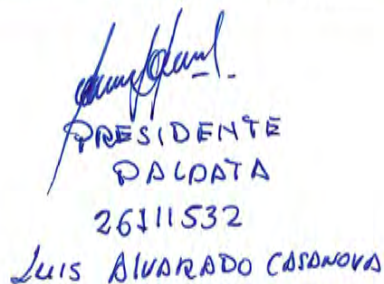 PRESIDENTE
DALDATA
26111532
Luis ALVARADO CASANOVA